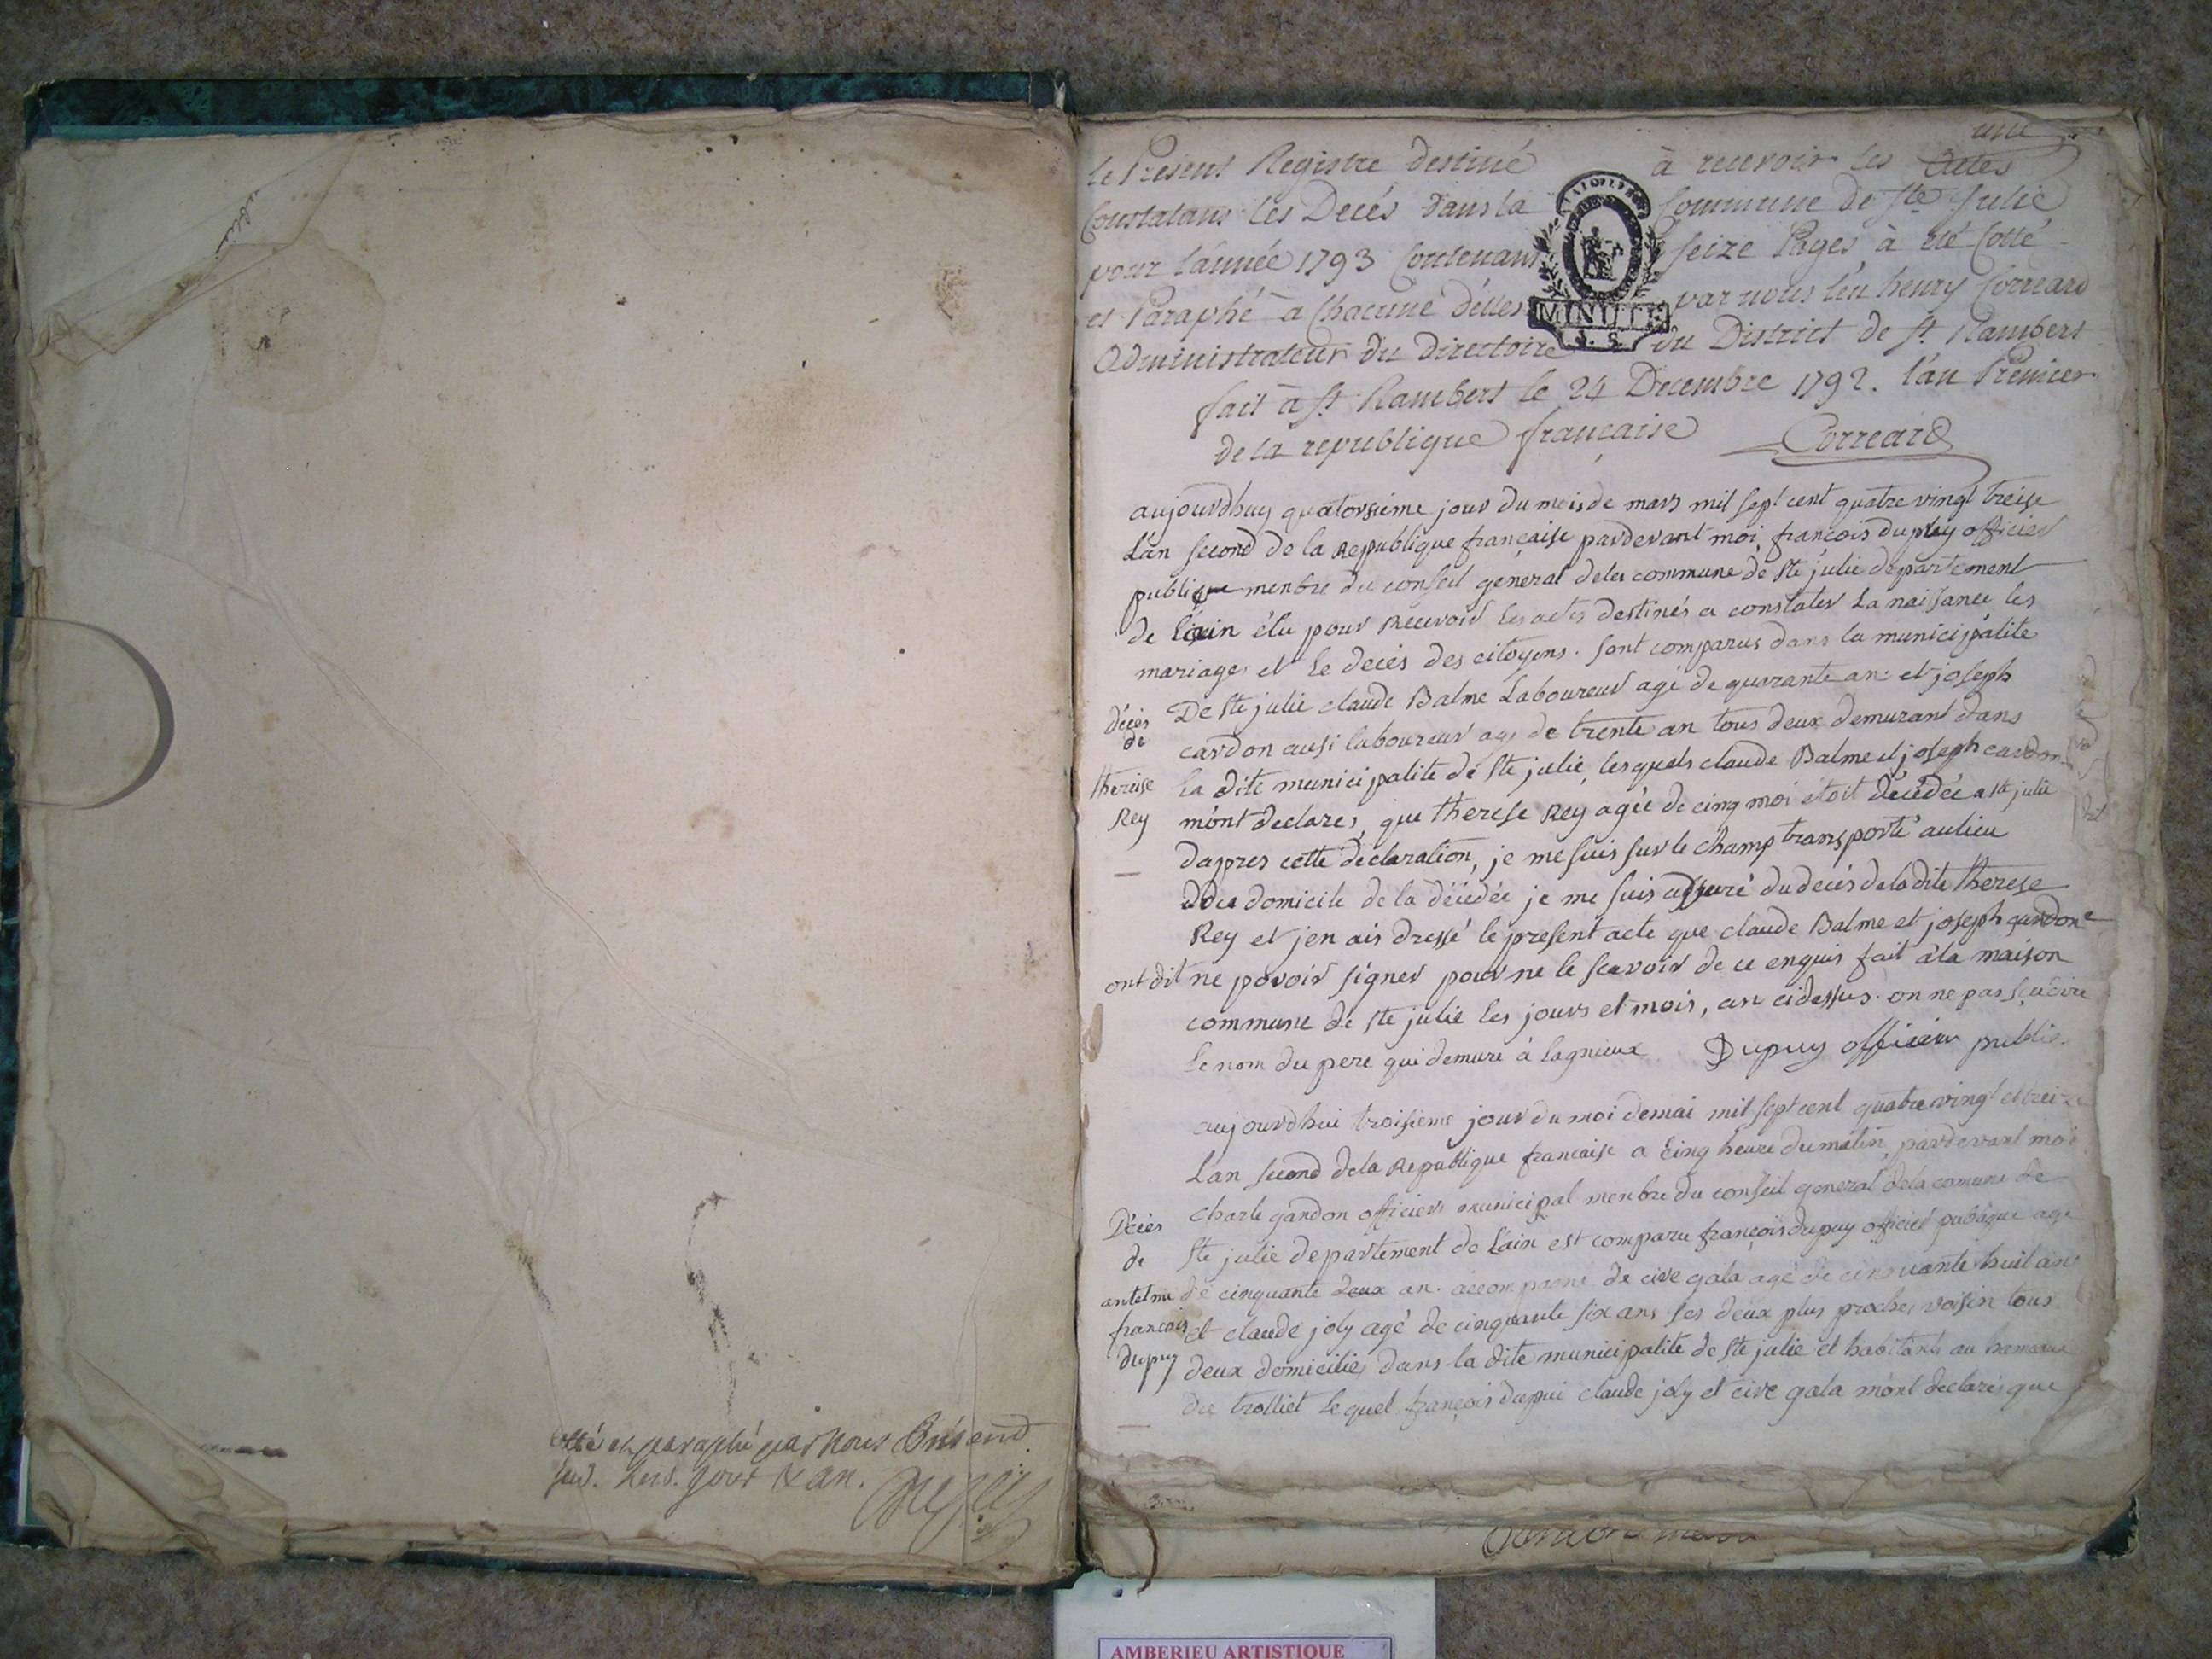 cotté et paraphé par nous
jour & an.
une
Le Present Registre destiné à recevoir les Actes
Constatans les Decés dans la Commune de Ste Julie
pour l'année 1793 Contenant seize Pages, à été Cotté
et Paraphé à Chacune d'elles par nous henry Correard
Administrateur du Directoire du District de St Rambert
MINUTE
fait à St Rambert le 24 Decembre 1792. l'an Premier
de la republique française Correard
aujourdhuy quatorsieme jour du mois de mars mil sept cent quatre vingt treise
L'an second de la Republique française pardevant moi françois dupuy officier
publique menbre du conseil general de la commune de ste julie departement
de L'ain élu pour Recevoir les actes destinés a constater La naissance les
mariages et le decès des citoyens. sont comparus dans la municipalite
De ste julie claude Balme Laboureur agé de quarante an et joseph
cardon ausi laboureur agé de trente an tous deux demurant dans
la dite municipalite de ste julie, lesquels claude Balme et joseph cardon
m'ont declares, que therese Rey agée de cinq moi étoit décédée a ste julie
dapres cette declaration, je me suis sur le champ transporté au lieu
du domicile de la décédée je me suis assuré du decés de la dite therese
Rey et jen ais dressé le present acte que claude Balme et joseph cardon
ont dit ne povoir signer pour ne le scavoir de ce enquis fait à la maison
commune de ste julie les jours et mois, an cidessus. on ne pas
le nom du pere qui demure à lagnieux Dupuy officier public.
décès
de
therese
Rey
aujourdhui troisieme jour du moi de mai mil sept cent quatre vingt et treize
L'an second de la Republique francaise a cinq heure du matin, pardevant moi
charle gandon officier municipal menbre du conseil general de la comune de
ste julie departement de L'ain est comparu françois dupuy officier publique agé
de cinquante deux an. accompagné de cive gala agé de cinquante huit an
et claude joly agé de cinquante six ans les deux plus proches voisin tous
deux domiciliés dans la dite municipalite de ste julie et habitants au hameau
du trolliet lequel françois dupui claude joly et cive gala m'ont declarés que
Décès
de
antelme
francois
dupuy
AMBERIEU ARTISTIQUE